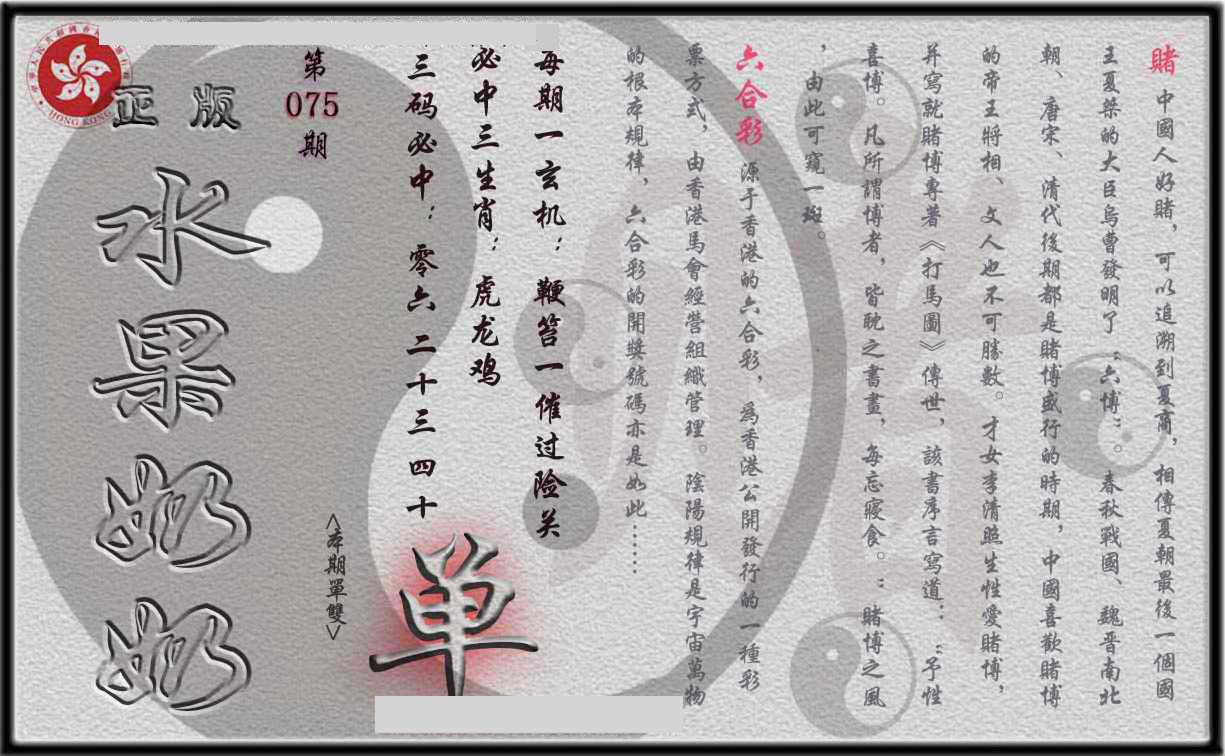 賭 中國人好賭，可以追溯到夏商，相傳夏朝最後一個國
王夏桀的大臣烏曹發明了“六博”。春秋戰國、魏晉南北
朝、唐宋、清代後期都是賭博盛行的時期，中國喜歡賭博
的帝王將相、文人也不可勝數。才女李清照生性愛賭博，
并寫就賭博專著《打馬圖》傳世，該書序言寫道：“予性
喜博。凡所謂博者，皆耽之書畫，每忘寢食。”賭博之風
，由此可窺一斑。
六合彩 源于香港的六合彩，爲香港公開發行的一種彩
票方式，由香港馬會經營組織管理。陰陽規律是宇宙萬物
的根本規律，六合彩的開獎號碼亦是如此……
每期一玄机：鞭笞一催过险关
必中三生肖：虎龙鸡
三码必中：零六二十三四十
单
<本期單雙>
第
075
期
正版
水果奶奶
HONG KONG